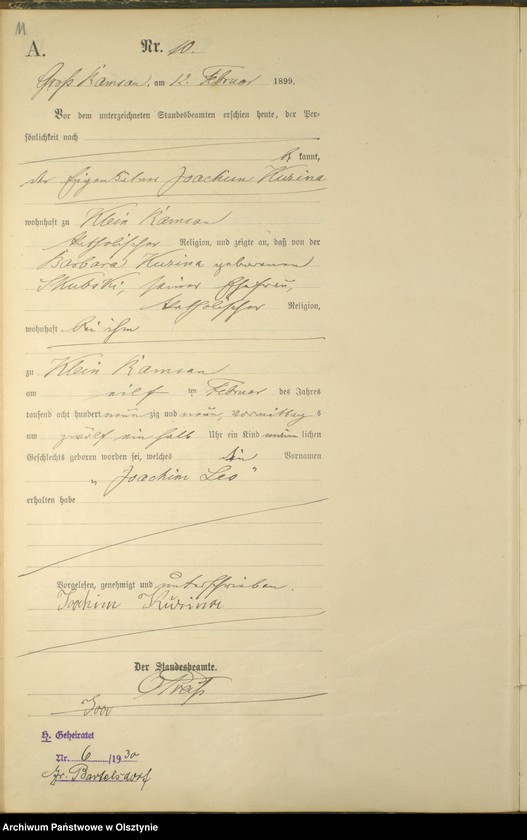 M
A.
Nr. 10.
Groß Kamsau, am 12. Februar 1899.
Vor dem unterzeichneten Standesbeamten erschien heute, der Per-
sönlichkeit nach
be kannt,
der Eigenthümer Joachim Kuzina
wohnhaft zu Klein Kamsau
katholischer Religion, und zeigte an, daß von der
Barbara Kuzina geborenen
Skubski, seiner Ehefrau,
katholischer Religion,
wohnhaft bei ihm
zu Klein Kamsau
am eilf ten Februar des Jahres
tausend acht hundert neun zig und neun, vormittag s
um zwölf ein halb Uhr ein Kind männ lichen
Geschlechts geboren worden sei, welches die Vornamen
„Joachim Leo“
erhalten habe
Vorgelesen, genehmigt und unterschrieben.
Joachim Kuzina
Der Standesbeamte.
H. Geheiratet
Nr. 6 /1930
Gr. Bartelsdorf
Archiwum Państwowe w Olsztynie